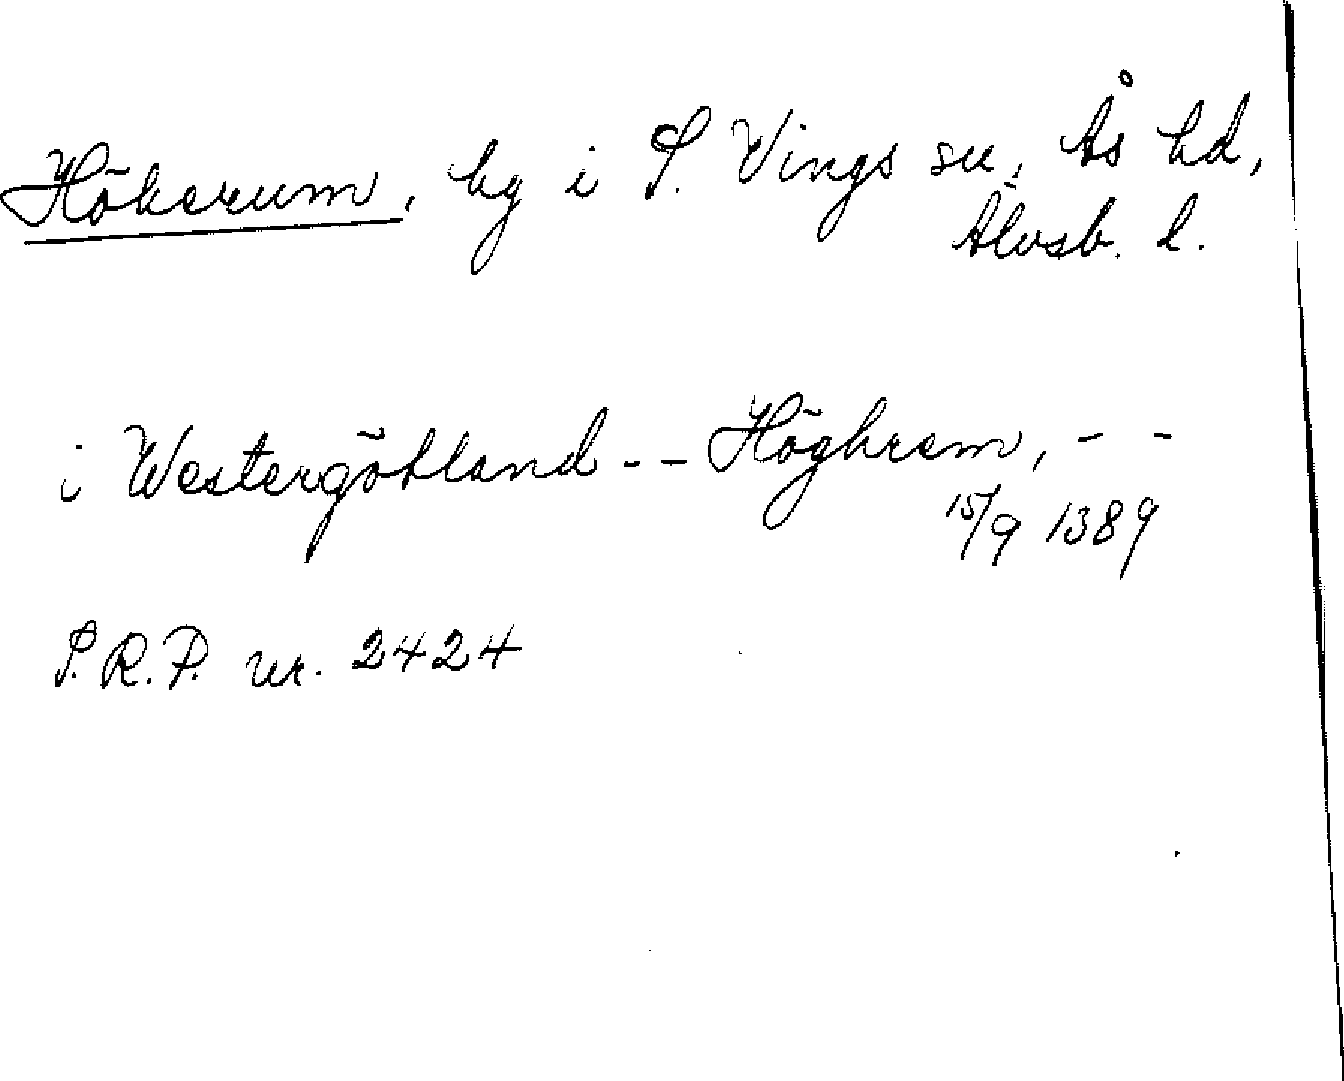 Hökerum, by i S. Vings sn, Ås hd,
Älvsb. l.
i Westergötland -- Höghrem, - -
15/9 1389
S.R.P. nr. 2424